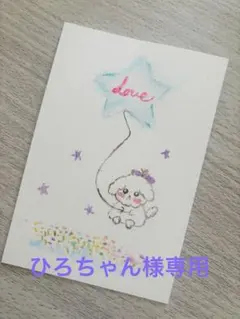 love
ひろちゃん様専用